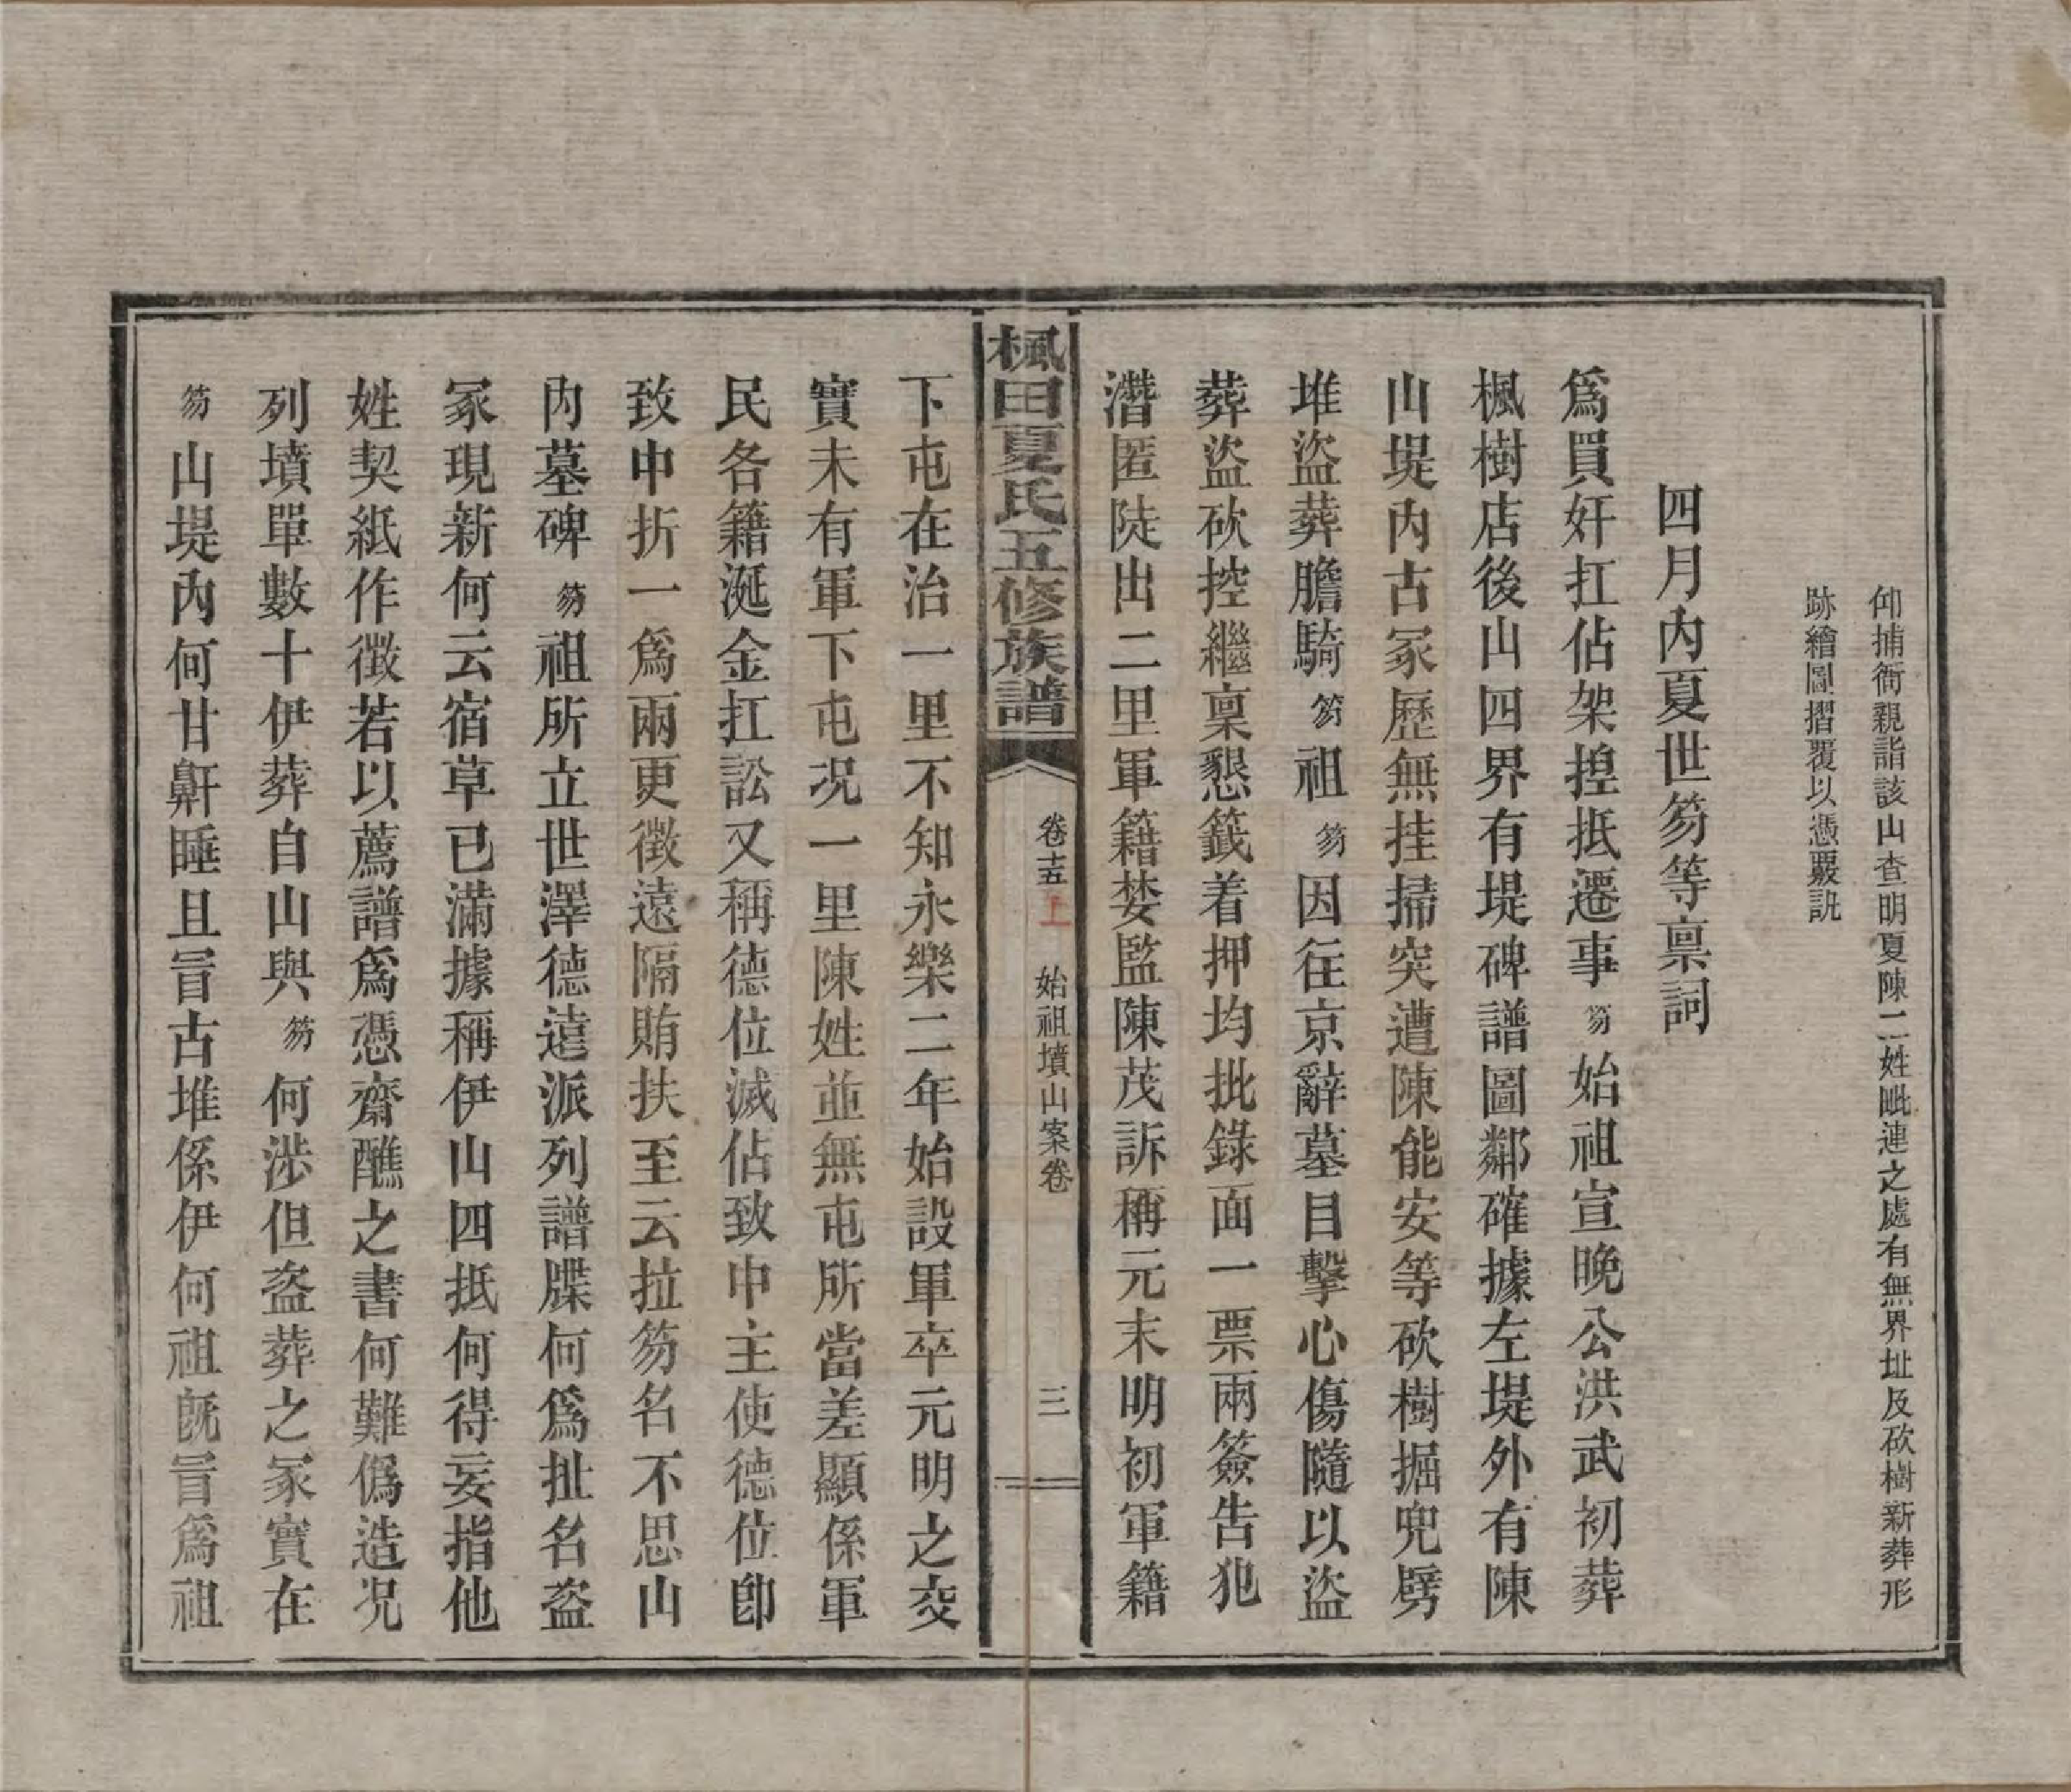 仰捕衙親詣該山查明夏陳二姓毗連之處有無界址及砍樹新葬形
跡繪圖摺覆以憑覈訊
四月內夏世竻等禀詞
爲買奸扛佔架揑抵遷事竻始祖宣晚公洪武初葬
楓樹店後山四界有堤碑譜圖鄰確據左堤外有陳
山堤內古冢歷無挂掃突遭陳能安等砍樹掘兜劈
堆盜葬膽騎竻祖竻因往京辭墓目擊心傷隨以盜
葬盜砍控繼稟懇籤着押均批錄面一票兩簽告犯
潛匿陡出二里軍籍婪監陳茂訴稱元末明初軍籍
楓田夏氏五修族譜
卷十五上
始祖墳山案卷
三
下屯在治一里不知永樂二年始設軍卒元明之交
實未有軍下屯况一里陳姓並無屯所當差顯係軍
民各籍涎金扛訟又稱德位滅佔致中主使德位卽
致中折一爲兩更徵遠隔賄扶至云拉竻名不思山
內墓碑竻祖所立世澤德遠派列譜牒何爲扯名盜
冢現新何云宿草已滿據稱伊山四抵何得妄指他
姓契紙作徵若以薦譜爲憑齋醮之書何難僞造况
列墳單數十伊葬自山與竻何涉但盜葬之冢實在
竻山堤內何甘鼾睡且冒古堆係伊何祖旣冒爲祖